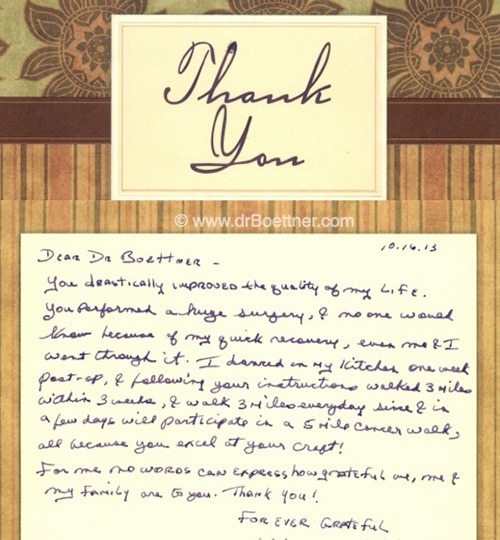 Thank
You
© www.drBoettner.com
10.16.13
Dear Dr Boettner -
You drastically improved the quality of my LIFE.
You performed a huge surgery, & no one would
know because of my quick recovery, even me & I
went through it. I danced in my kitchen one week
post-op, & following your instructions walked 3 miles
within 3 weeks, & walk 3 miles everyday since & in
a few days will participate in a 5 mile cancer walk,
all because you excel at your craft!
For me no words can express how grateful we, me &
my family are to you. Thank you!
FOR EVER GRATEFUL